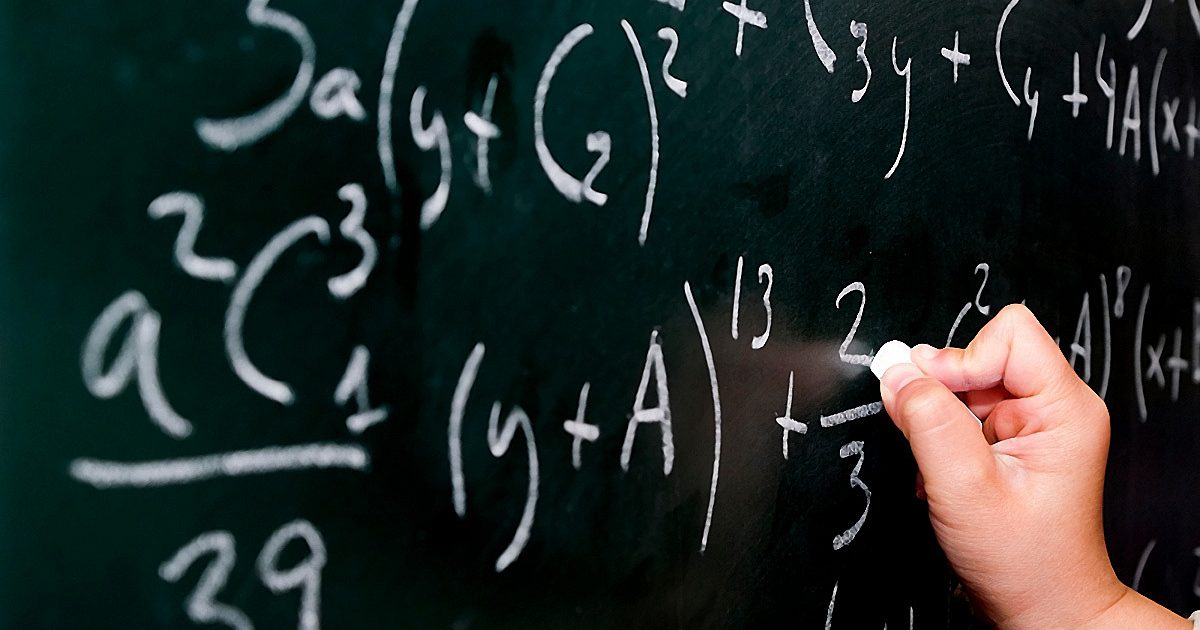 3a(y+(2)² + (3y + (y + yA(x+
a²C³₁/39 (y+A)¹³ + 2/3 (² A)⁸(x+